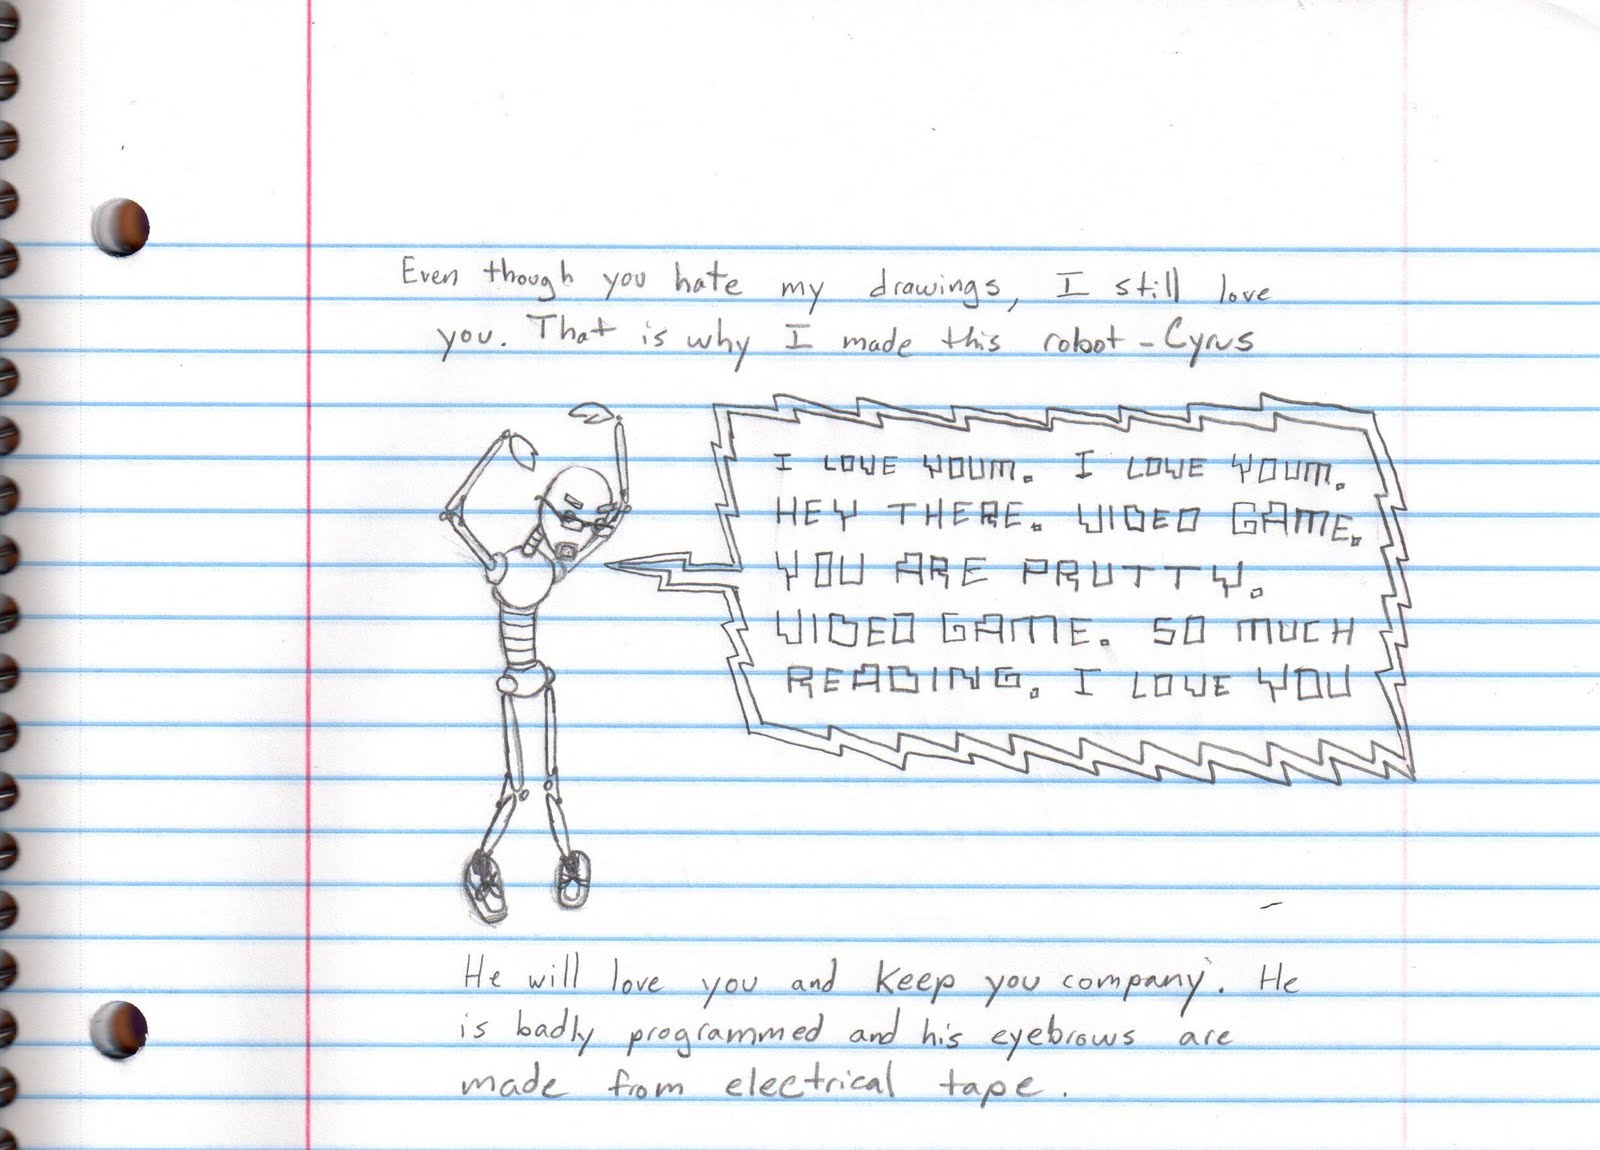 Even though you hate my drawings, I still love
you. That is why I made this robot - Cyrus
I LOVE YOUM. I LOVE YOUM.
HEY THERE. VIDEO GAME.
YOU ARE PRUTTY.
VIDEO GAME. SO MUCH
READING. I LOVE YOU
He will love you and keep you company. He
is badly programmed and his eyebrows are
made from electrical tape.